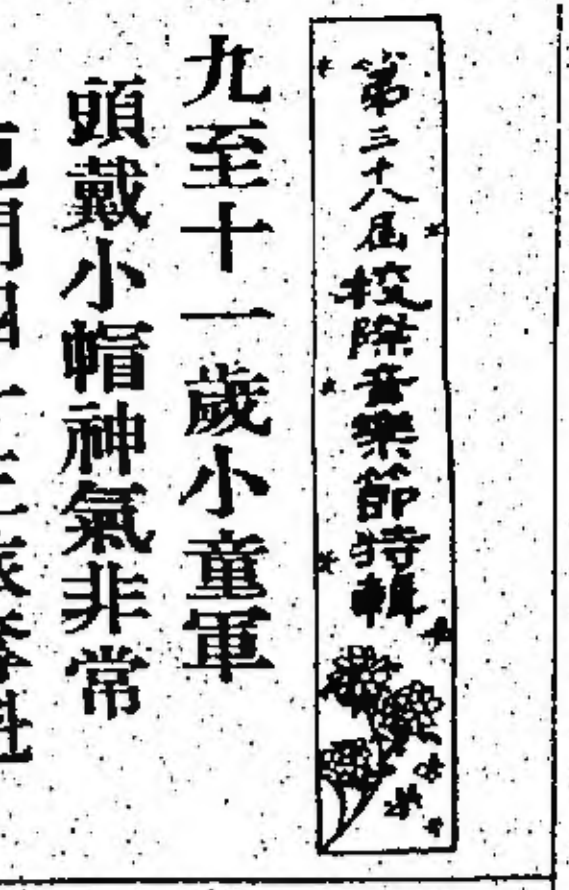 第三十八屆校際音樂節特輯
九至十一歲小童軍
頭戴小帽神氣非常